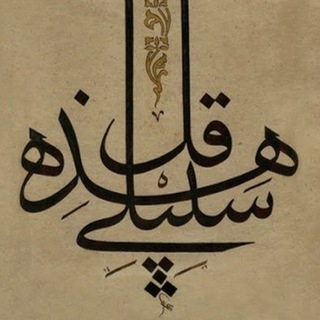 قل هذه سبيلي